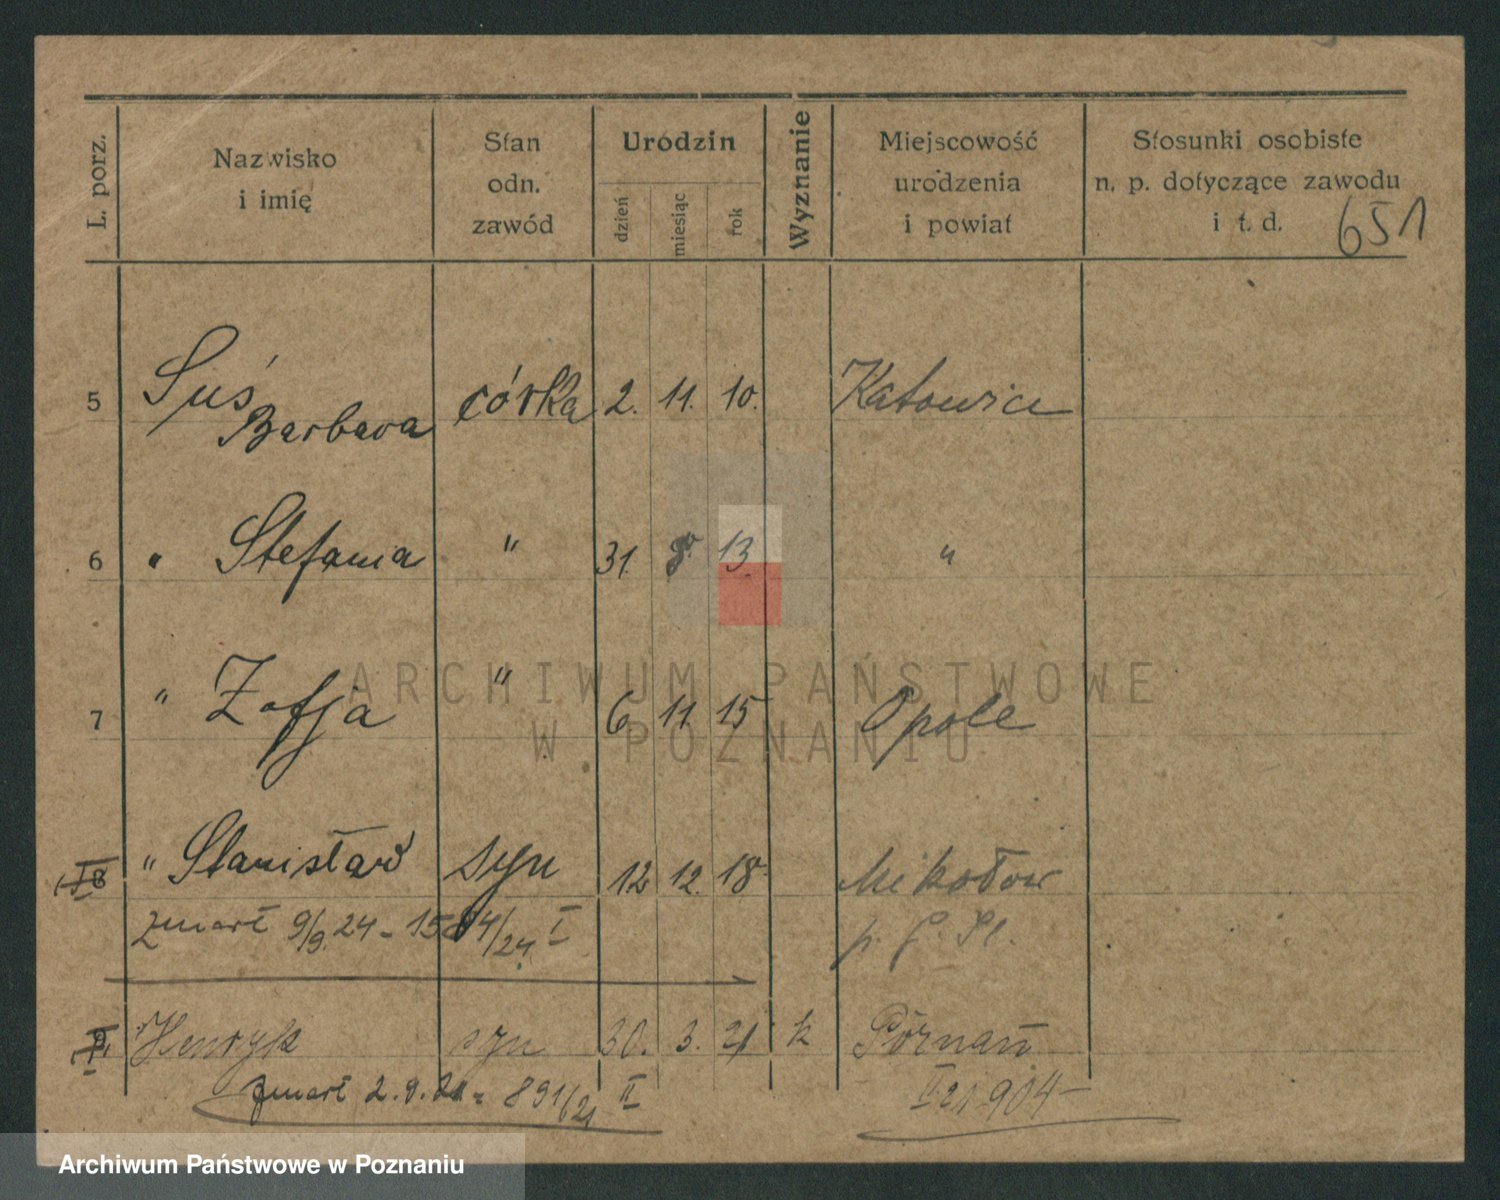 L. porz. Nazwisko i imię Stan odn. zawód Urodzin dzień miesiąc rok Wyznanie Miejscowość urodzenia i powiat Stosunki osobiste n. p. dotyczące zawodu i t. d.
651
5 Suś Barbara córka 2. 11. 10. Katowice
6 " Stefania " 31. 8. 13. "
7 " Zofja " 6. 11. 15 Opole
8 " Stanisław syn 12 12. 18. Mikołów
zmarł 9/9.24 - 1584/24. I p. G. Śl.
9 Henryk syn 30. 3. 21 k Poznań
zmarł 2.9.21 = 891/21 II II 21 904
ARCHIWUM PAŃSTWOWE
W POZNANIU
Archiwum Państwowe w Poznaniu